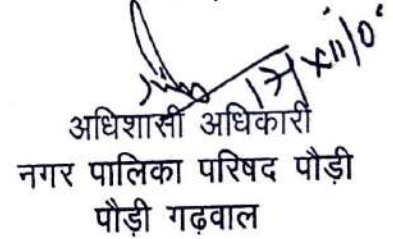 अधिशासी अधिकारी
नगर पालिका परिषद पौड़ी
पौड़ी गढ़वाल